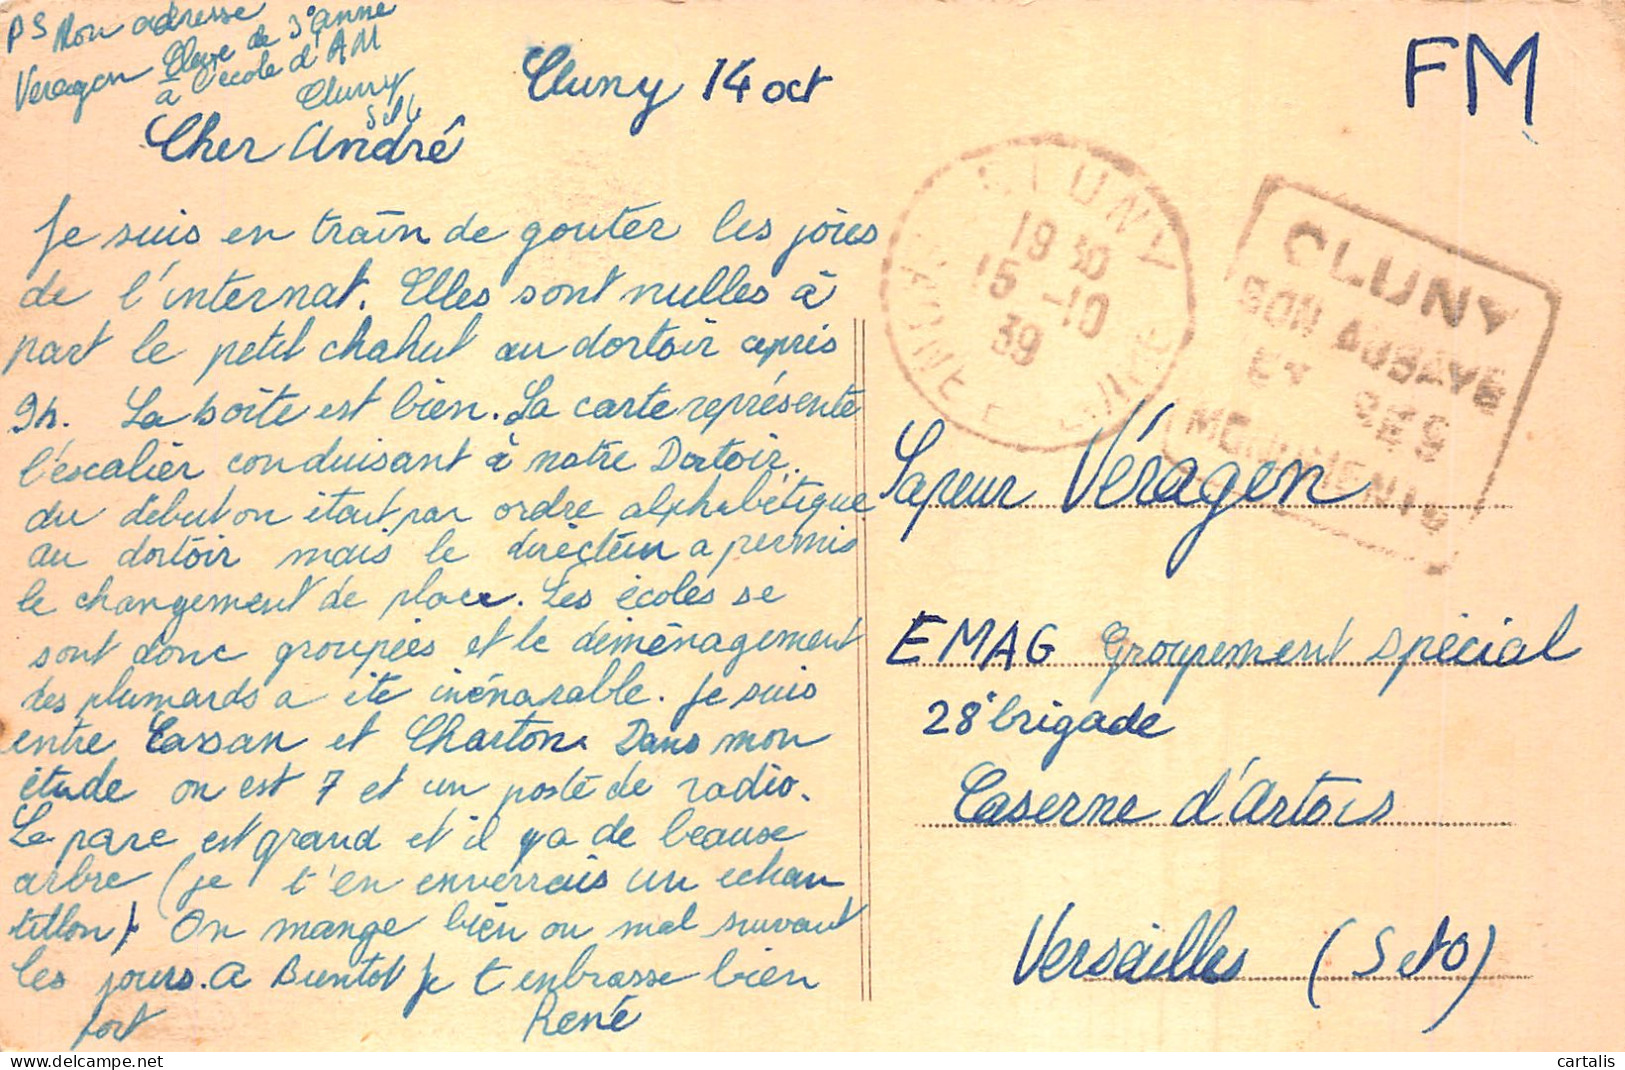 PS Mon adresse
Veragen Eleve de 3° anne
a l'école d'AM
Cluny
S et L
Cluny 14 oct
FM
Cher André
Je suis en train de gouter les joies
de l'internat. Elles sont nulles à
part le petit chahut au dortoir après
9h. La boîte est bien. La carte représente
l'escalier conduisant à notre Dortoir.
du début on était par ordre alphabétique
au dortoir mais le directeur a permis
le changement de place. Les écoles se
sont donc groupées et le déménagement
des plumards a été inénarrable. Je suis
entre Cassan et Charton. Dans mon
étude on est 7 et un poste de radio.
Le parc est grand et il y a de beause
arbre (je t'en enverrais un echan
tillon). On mange bien ou mal suivant
les jours. A Bientot Je t'enbrasse bien
fort René
CLUNY
19 30
15 -10
39
SAONE ET LOIRE
CLUNY
SON ABBAYE
ET SES
MONUMENTS
Sapeur Véragen
EMAG Groupement spécial
28° brigade
Caserne d'Artois
Versailles (S et O)
cartalis